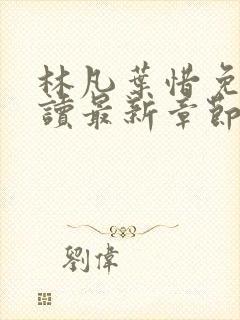 林凡葉惜免
讀最新章節
劉偉